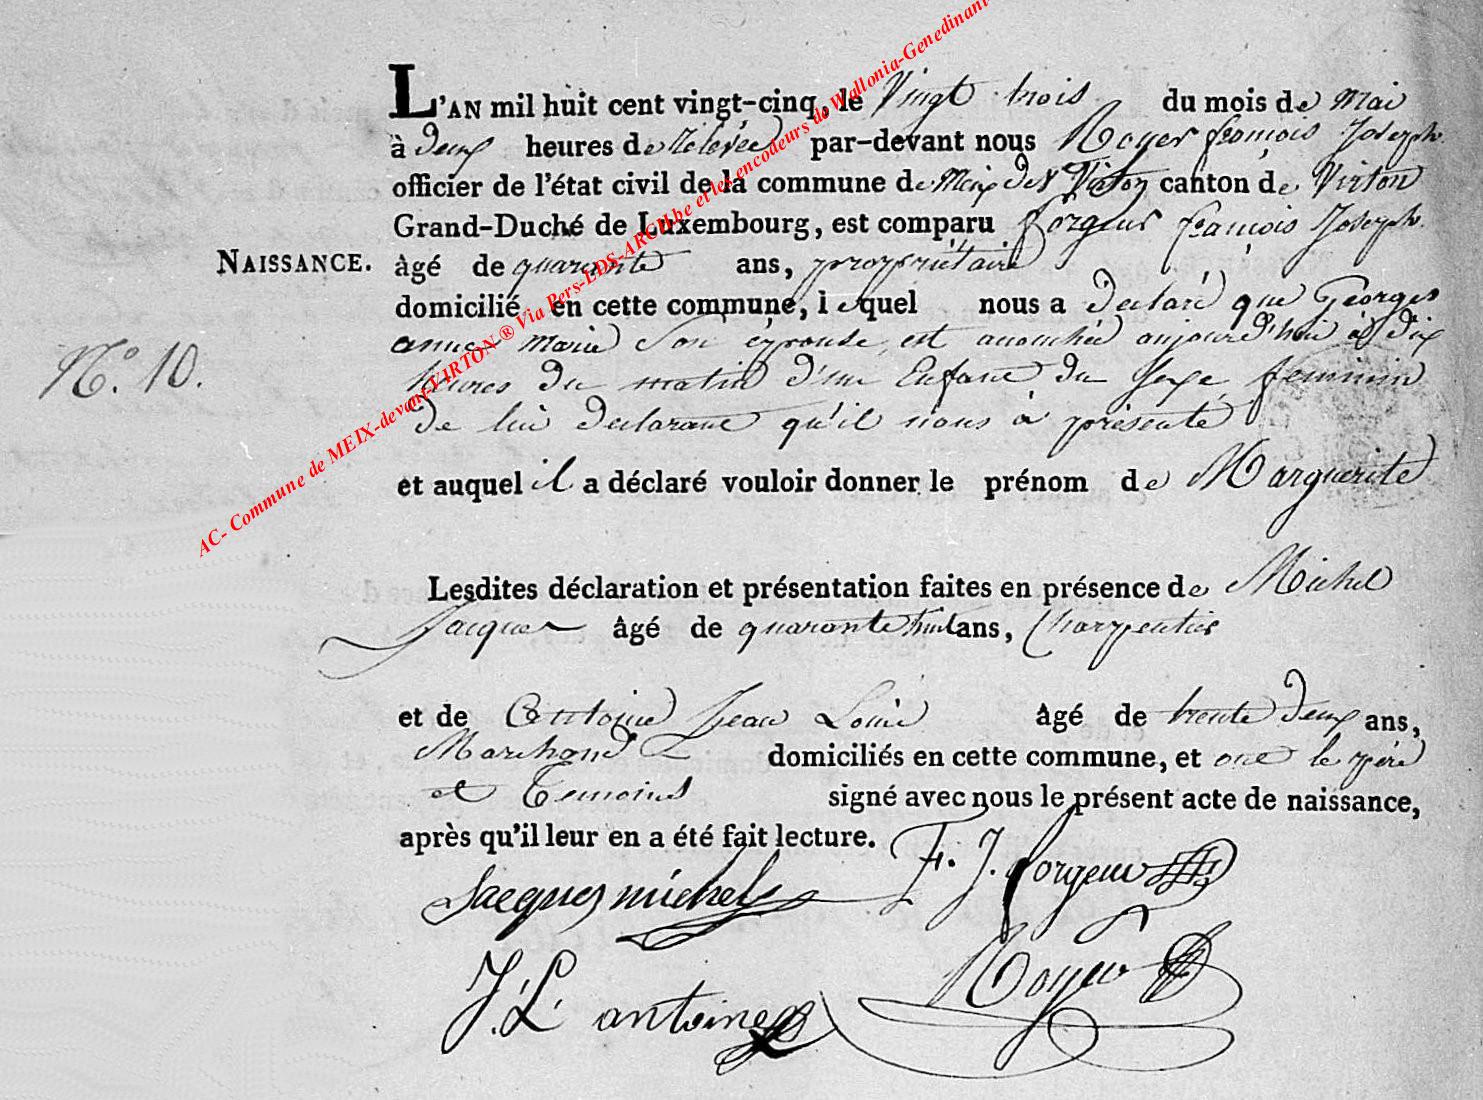 L'AN mil huit cent vingt-cinq, le Vingt trois du mois de mai
à deux heures de relevée par-devant nous Royer françois Joseph
officier de l'état civil de la commune de Meix dt Virton canton de Virton
Grand-Duché de Luxembourg, est comparu forgeur françois Joseph.
NAISSANCE. âgé de quarante ans, propriétaire
domicilié en cette commune, lequel nous a declaré que Georges
anne marie Son épouse est accouchée aujourd'hui à dix
N.° 10. heures du matin d'un Enfant du Sexe feminin
de lui declarant qu'il nous à présenté
et auquel il a déclaré vouloir donner le prénom de Marguerite
Lesdites déclaration et présentation faites en présence de Michel
Jacques âgé de quarante huit ans, Charpentier
et de Antoine Jean Louis âgé de trente deux ans,
Marchand domiciliés en cette commune, et ont le père
et Temoins signé avec nous le présent acte de naissance,
après qu'il leur en a été fait lecture.
F. J. forgeur
Jacques michel
Royer
J. L. antoine
AC- Commune de MEIX-devant-VIRTON ® Via Pers-LDS-ARCH.be et les encodeurs de Wallonia-Genedinant